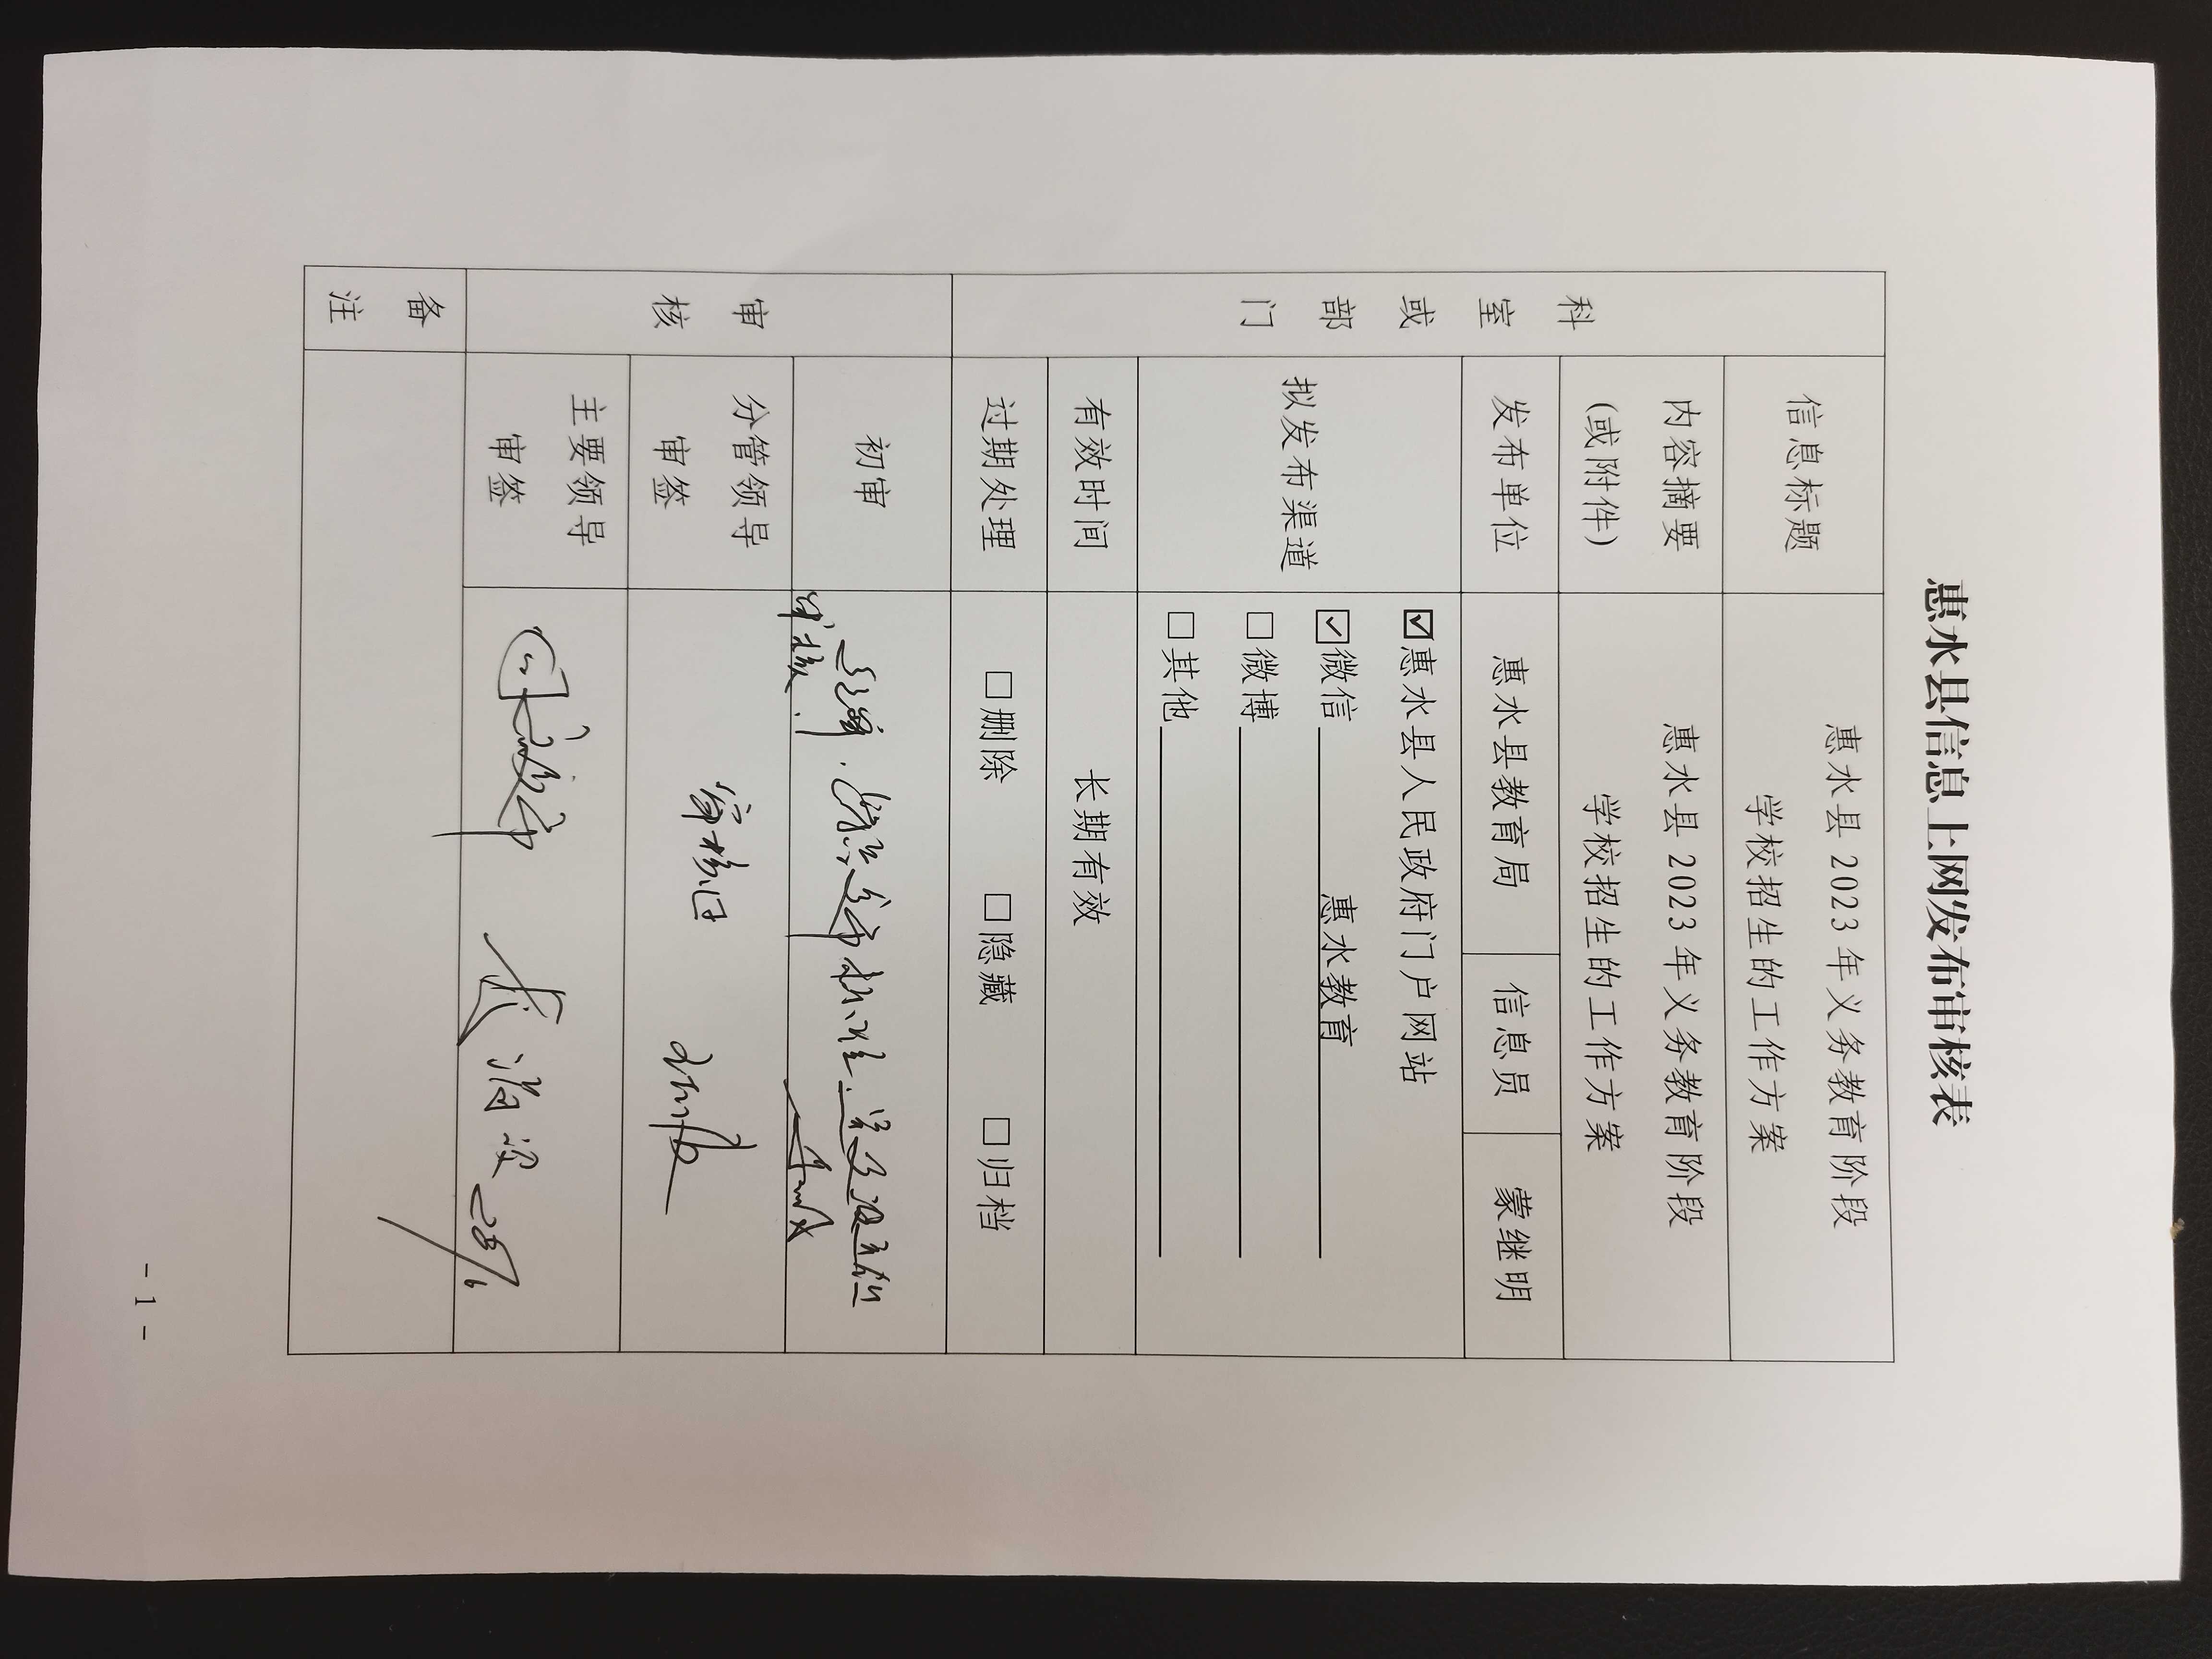 惠水县信息上网发布审核表
科室或部门
信息标题
惠水县 2023 年义务教育阶段
学校招生的工作方案
内容摘要
(或附件)
惠水县 2023 年义务教育阶段
学校招生的工作方案
发布单位 惠水县教育局 信息员 蒙继明
拟发布渠道
☑惠水县人民政府门户网站
☑微信 惠水教育
□微博
□其他
有效时间 长期有效
过期处理 □删除 □隐藏 □归档
审核
初审
审核.
分管领导
审签
审核同
主要领导
审签
28/6
备注
- 1 -